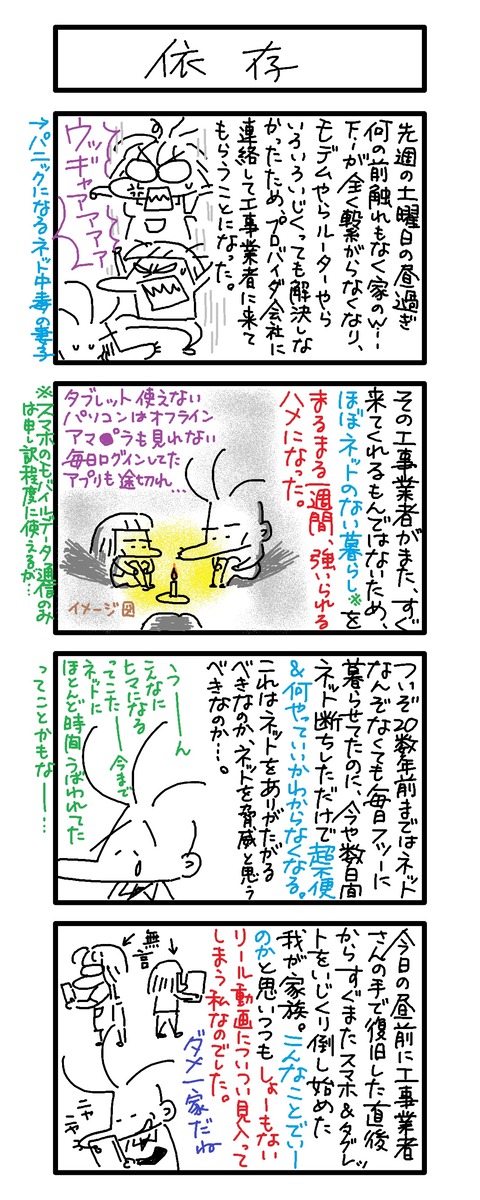 依存
先週の土曜日の昼過ぎ
何の前触れもなく家のWi-
Fiが全く繋がらなくなり、
モデムやらルーターやら
いろいろいじくっても解決しな
かったため、プロバイダ会社に
連絡して工事業者に来て
もらうことになった。
ウッ
ギャアアアァァ
→パニックになるネット中毒の妻子
その工事業者がまた、すぐ
来てくれるもんではないため、
ほぼネットのない暮らし※を
まるまる一週間、強いられる
ハメになった。
タブレット使えない
パソコンはオフライン
アマ●プラも見れない
毎日ログインしてた
アプリも途切れ…
イメージ図
※スマホのモバイルデータ通信のみ
は申し訳程度に使えるが…
ついぞ20数年前まではネット
なんぞなくても毎日フツーに
暮らせてたのに、今や数日間
ネット断ちしただけで超不便
&何やっていいかわからなくなる。
これはネットをありがたがる
べきなのか、ネットを脅威と思う
べきなのか…。
うーーん
こんなに
ヒマになる
ってこたーー今まで
ネットに
ほとんど時間うばわれてた
ってことかもなーー…
今日の昼前に工事業者
さんの手で復旧した直後
からすぐまたスマホ&タブレッ
トをいじくり倒し始めた
我が家族。こんなことでいー
のかと思いつつもしょーもない
リール動画についつい見入って
しまう私なのでした。
無言
ダメ一家だね
ニヤニヤ